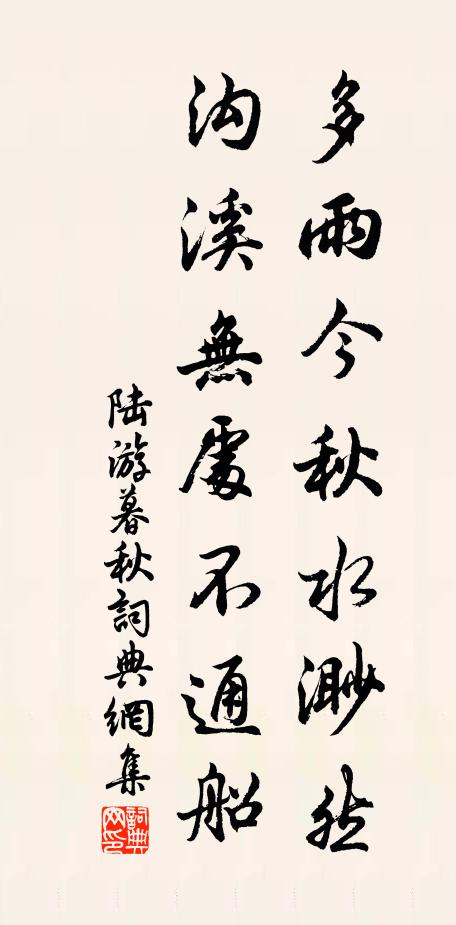 多雨今秋水渺然
沟溪無處不通船
陆游暮秋詞典網集
詞典网印